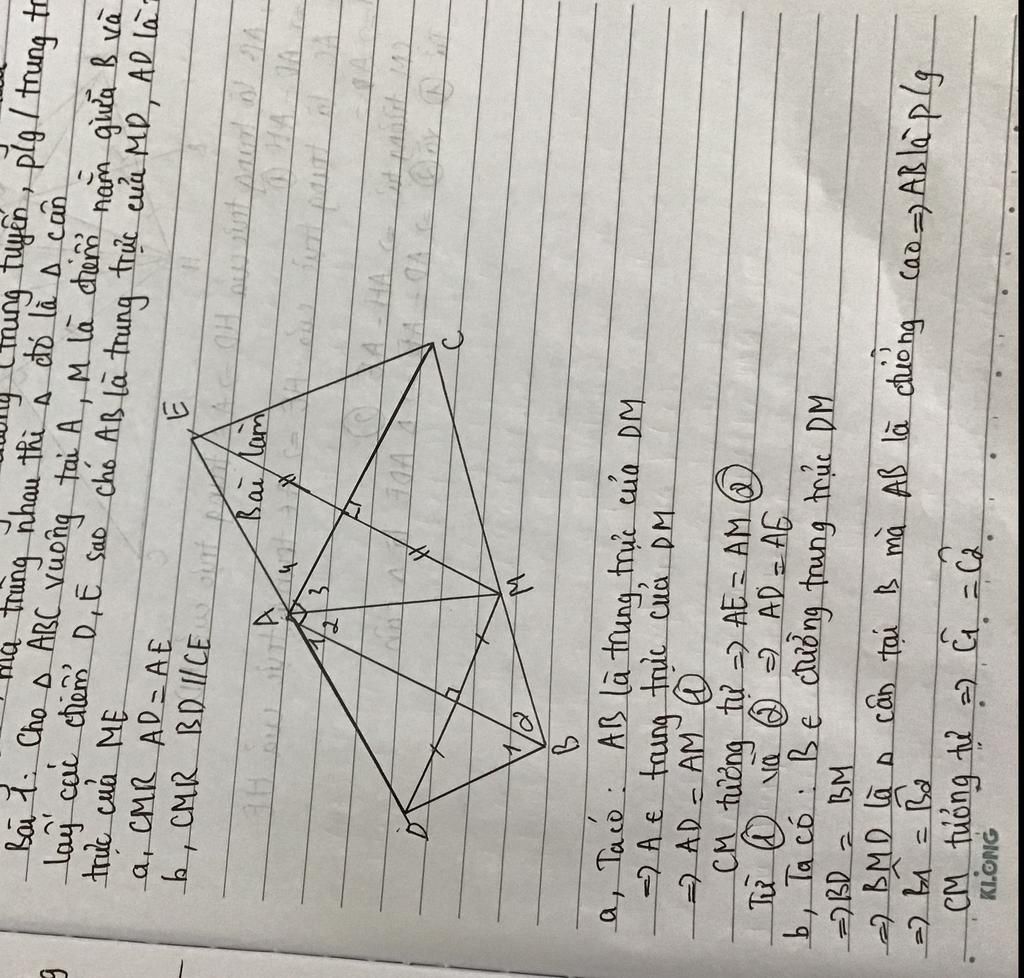 mà trùng nhau thì Δ đó là Δ cân
Bài 1: Cho Δ ABC vuông tại A, M là điểm nằm giữa B và
lấy các điểm D, E sao cho AB là trung trực của MD, AD là
trực của ME
a, CMR AD = AE
b, CMR BD // CE
Bài làm
E
A
1 2 3 4
D
C
M
1 2
B
a, Ta có: AB là trung trực của DM
=> A ∈ trung trực của DM
=> AD = AM ①
CM tương tự => AE = AM ②
Từ ① và ② => AD = AE
b, Ta có: B ∈ đường trung trực DM
=> BD = BM
=> BMD là Δ cân tại B mà AB là đường cao => AB là p/g
=> B̂1 = B̂2
CM tương tự => Ĉ1 = Ĉ2
KLONG